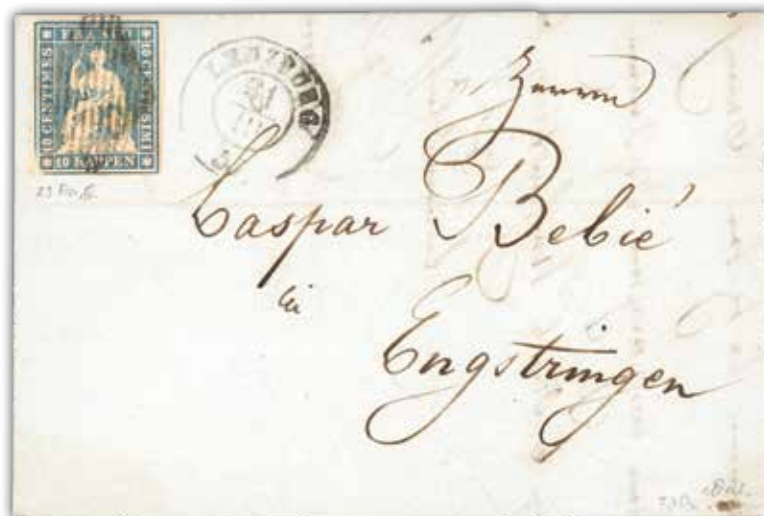 FRANCO
10 CENTIMES
10 CENTESIMI
10 RAPPEN
LENZBURG
Herrn
Caspar Bebié
in
Engstringen